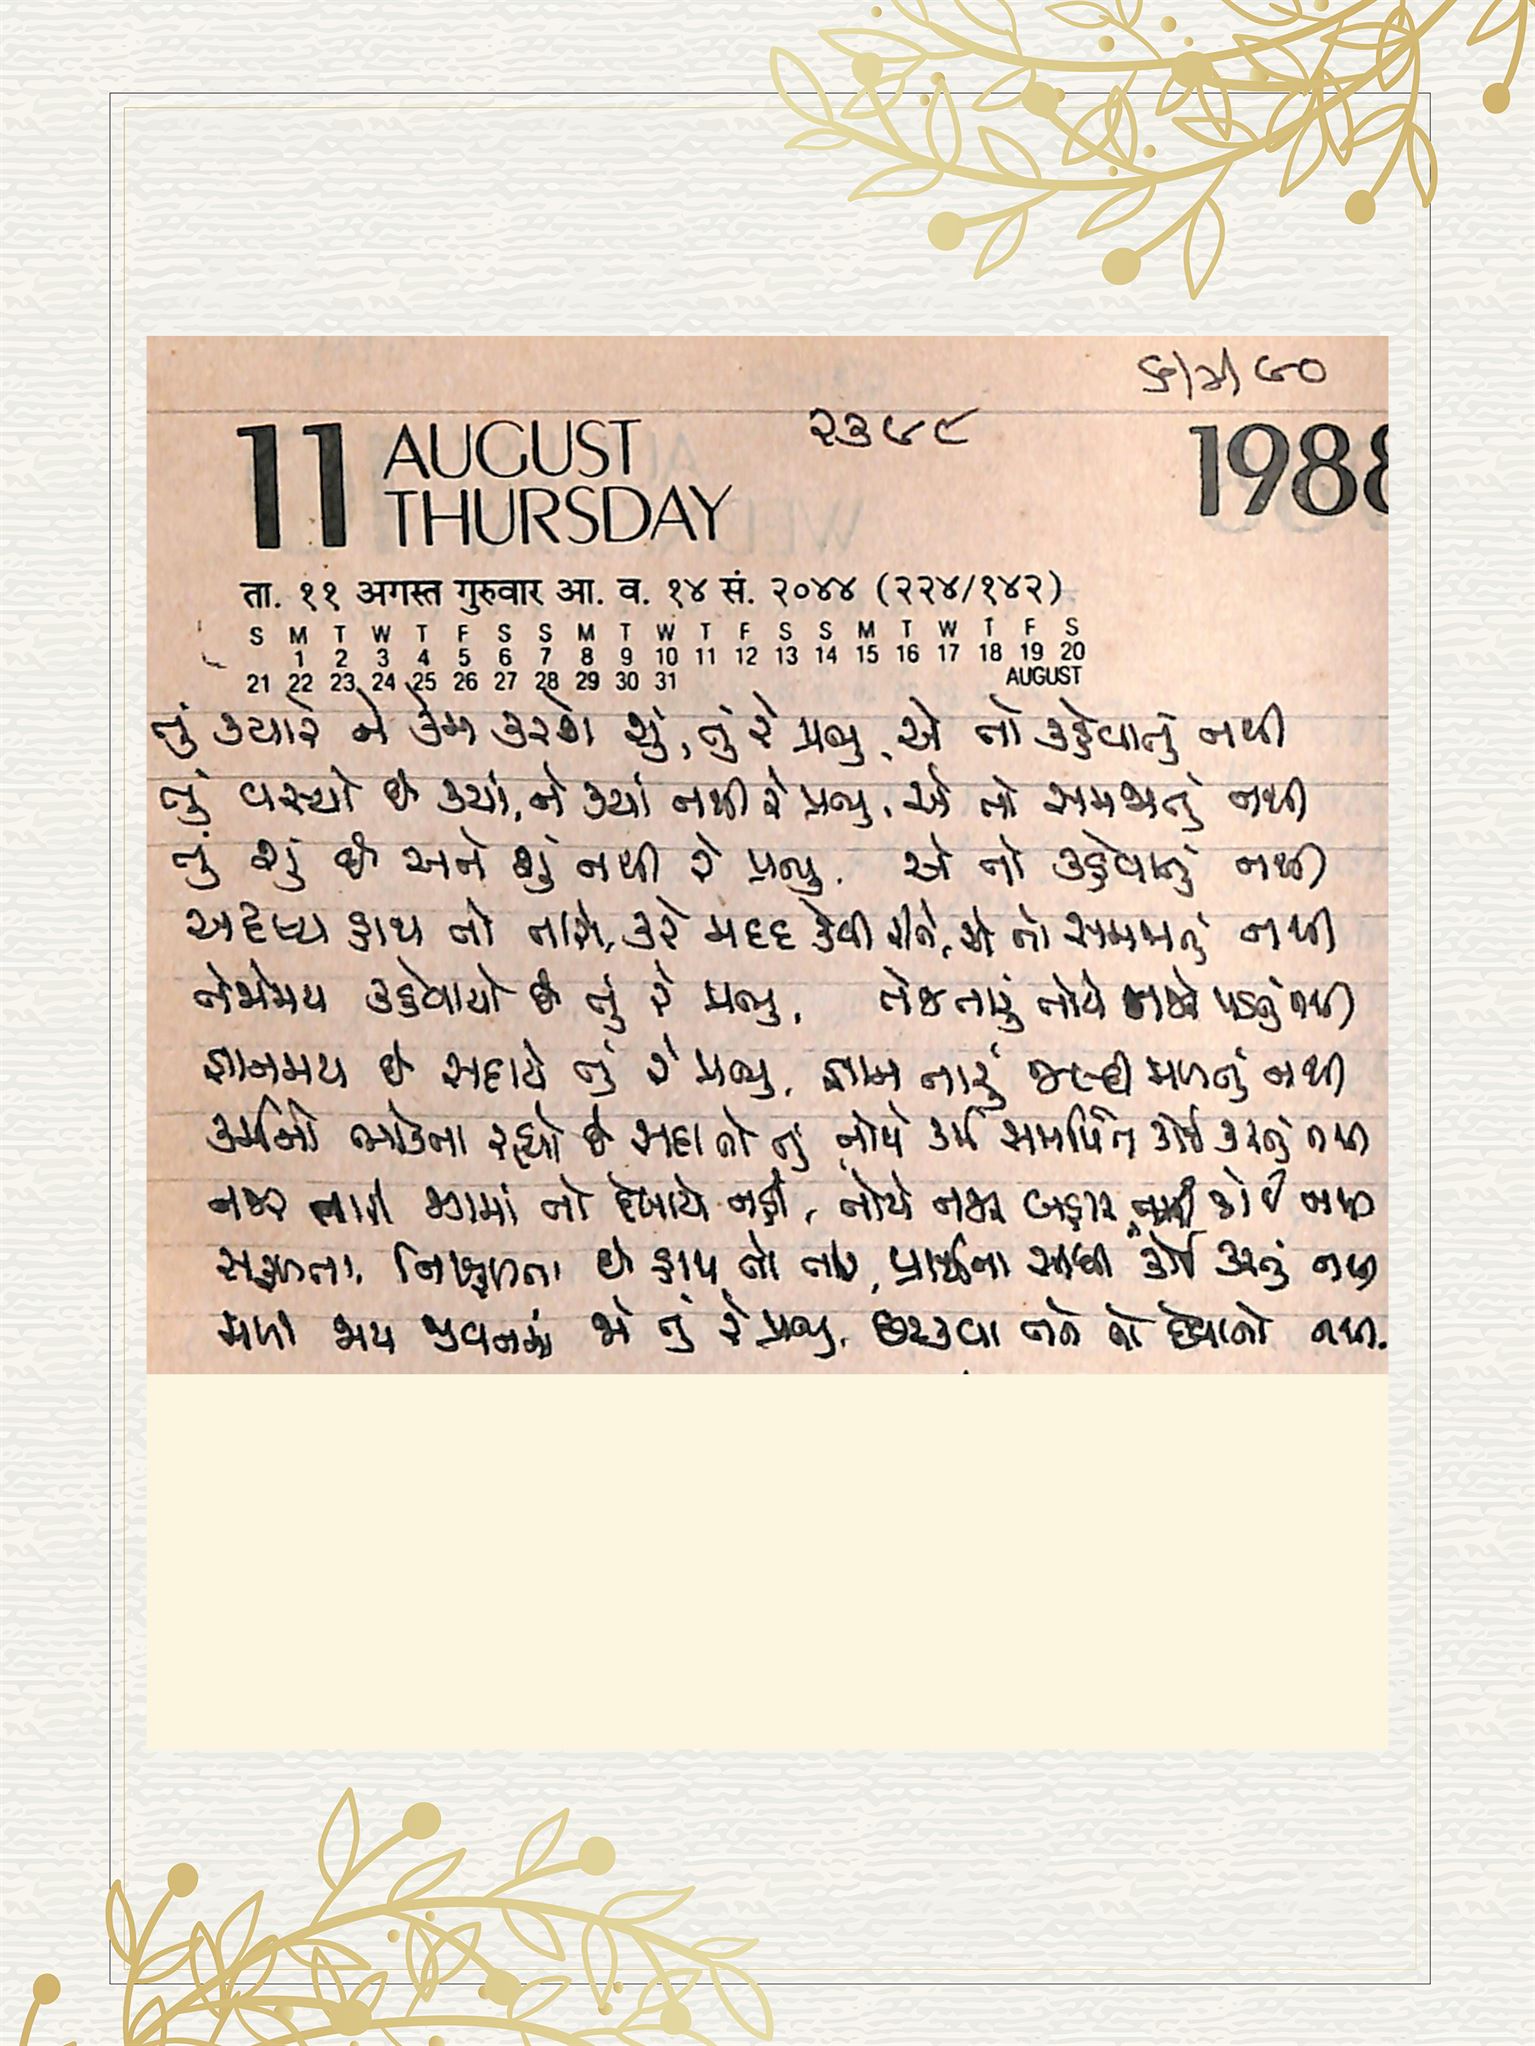 ૬/૪/૯૦
૨૩૯૯
11 AUGUST
THURSDAY
1988
ता. ११ अगस्त गुरुवार आ. व. १४ सं. २०४४ (२२४/१४२)
S M T W T F S S M T W T F S S M T W T F S
1 2 3 4 5 6 7 8 9 10 11 12 13 14 15 16 17 18 19 20
21 22 23 24 25 26 27 28 29 30 31 AUGUST
તું ક્યારે ને કેમ કરશે શું, તું રે પ્રભુ, એ તો કહેવાતું નથી
તું વસ્યો છે ક્યાં, ને ક્યાં નથી રે પ્રભુ, એ તો સમજાતું નથી
તું શું છે અને શું નથી રે પ્રભુ, એ તો કહેવાતું નથી
અદૃશ્ય હાથ તો તારો, કરે મદદ કેવી રીતે, એ તો સમજાતું નથી
તેજોમય કહેવાયો છે તું રે પ્રભુ, તેજ તારું તોયે નજરે પડતું નથી
જ્ઞાનમય છે સદાયે તું રે પ્રભુ, જ્ઞાન તારું જલ્દી મળતું નથી
કર્મોનો ભોક્તા રહ્યો છે સદા તો તું, તોયે કર્મ સમર્પિત કોઈ કરતું નથી
નજર તારી જગમાં તો દેખાયે નહીં, તોયે નજર બહાર તારી કોઈ નથી
સફળતા, નિષ્ફળતા છે હાથ તો તારે, પ્રાર્થના સાચી કોઈ કરતું નથી
મળી જાય જીવનમાં જો તું રે પ્રભુ, છટકવા તને તો દેવાનો નથી.